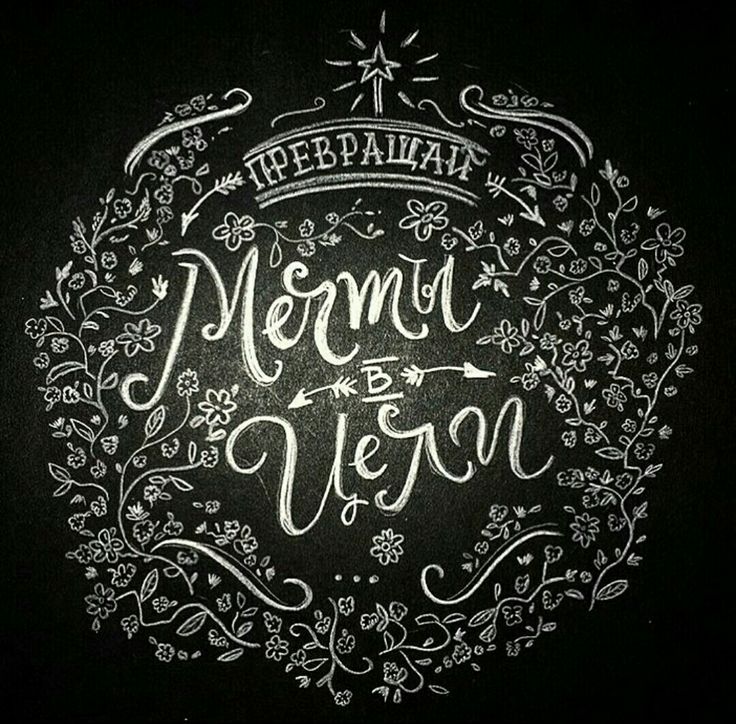 ПРЕВРАЩАЙ
Мечты
в
Цели
...